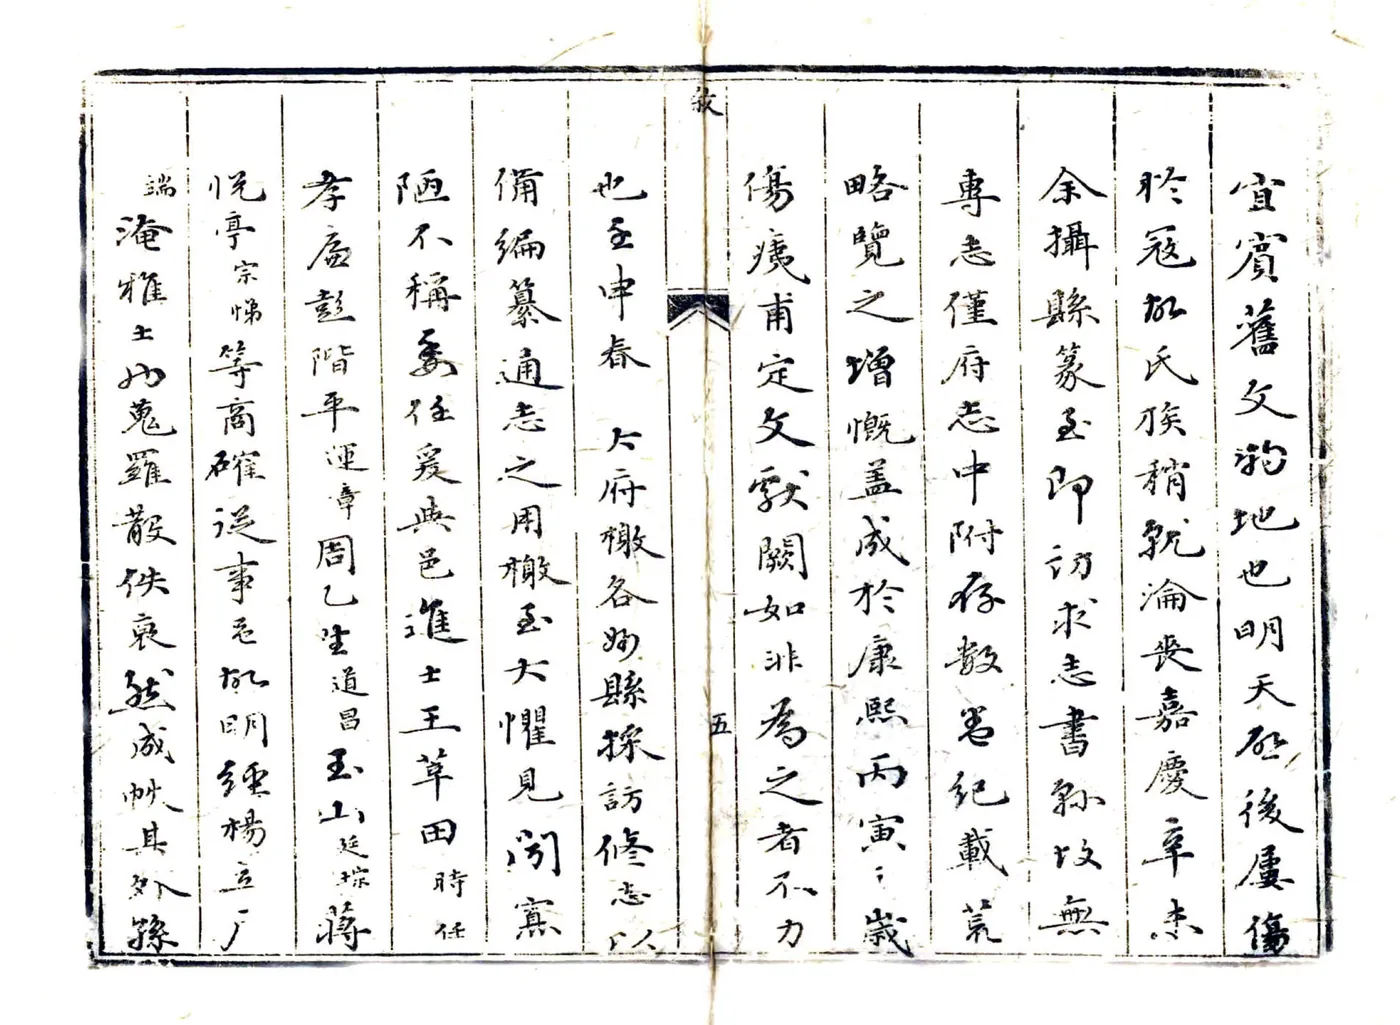 宜賓舊文物地也明天啓後屢傷
於寇故氏族稍就淪喪嘉慶辛未
余攝縣篆至即訪求志書縣故無
專志僅府志中附存数卷紀載荒
略覽之增慨盖成於康熙丙寅〻歲
傷痍甫定文獻闕如非為之者不力
敘
五
也壬申春 大府檄各州縣採訪修志以
備編纂通志之用檄至大懼見聞寡
陋不稱委任爰與邑進士王草田時任
孝廉彭階平運章周乙生道昌玉山廷琮蔣
悦亭宗悌等商確從事邑故明經楊立厂
端淹雅士也蒐羅散佚裒然成帙其外孫